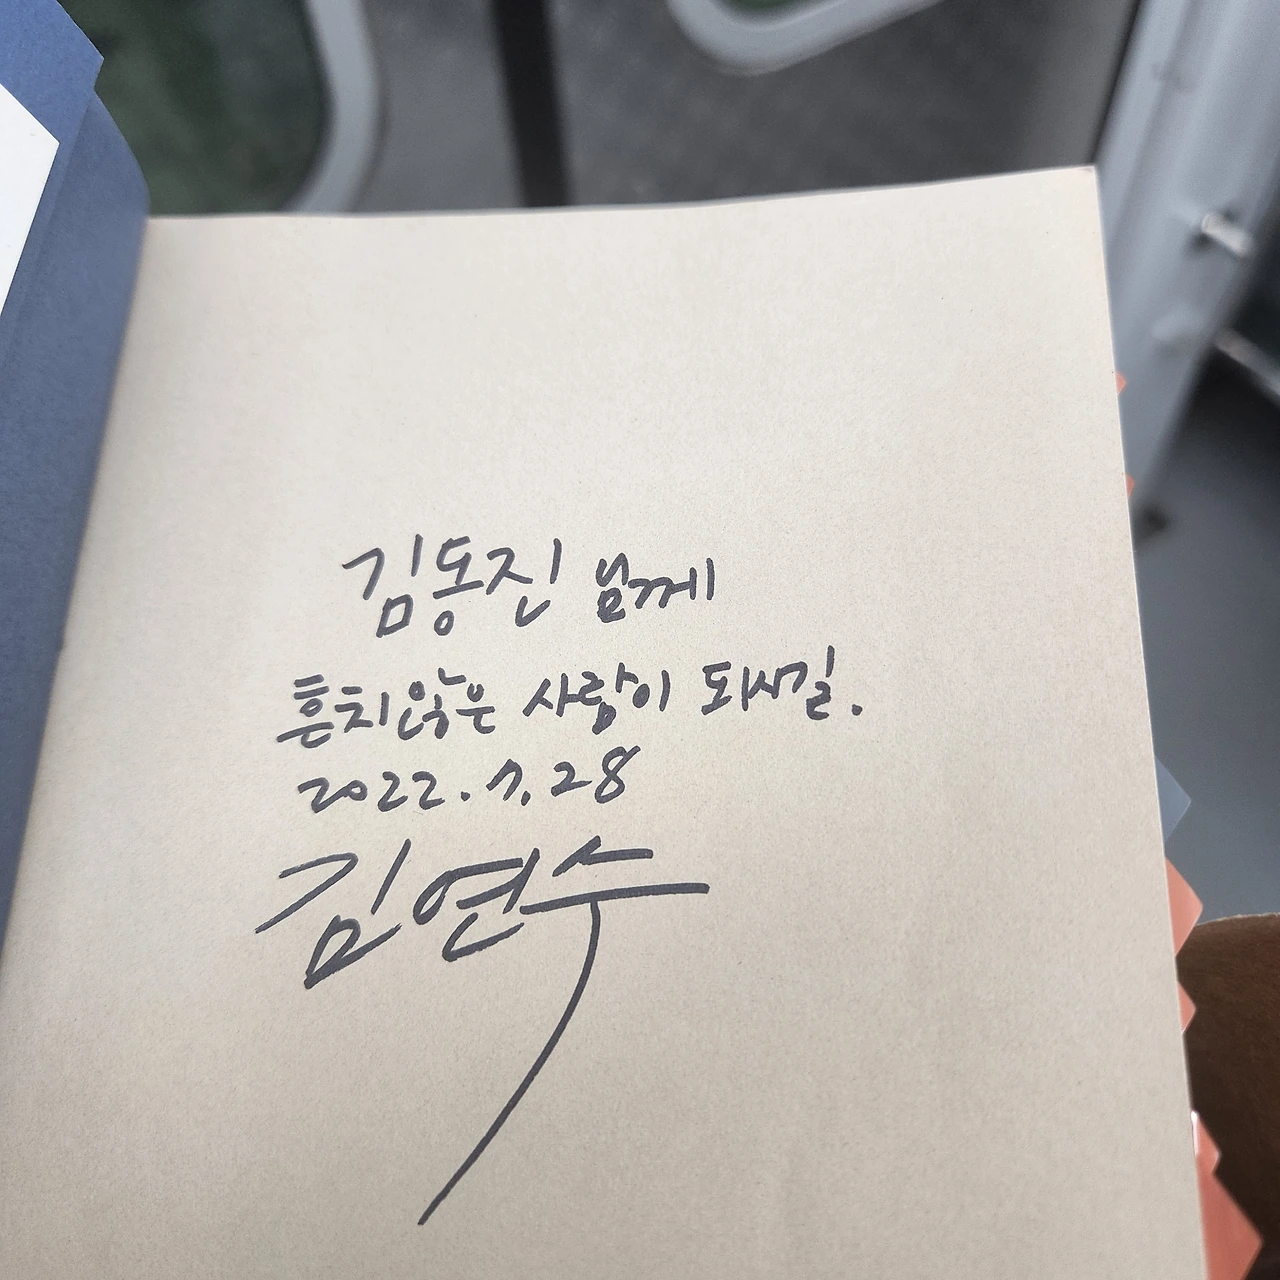 김동진 님께
흔치않은 사람이 되시길.
2022. 7. 28
김연수